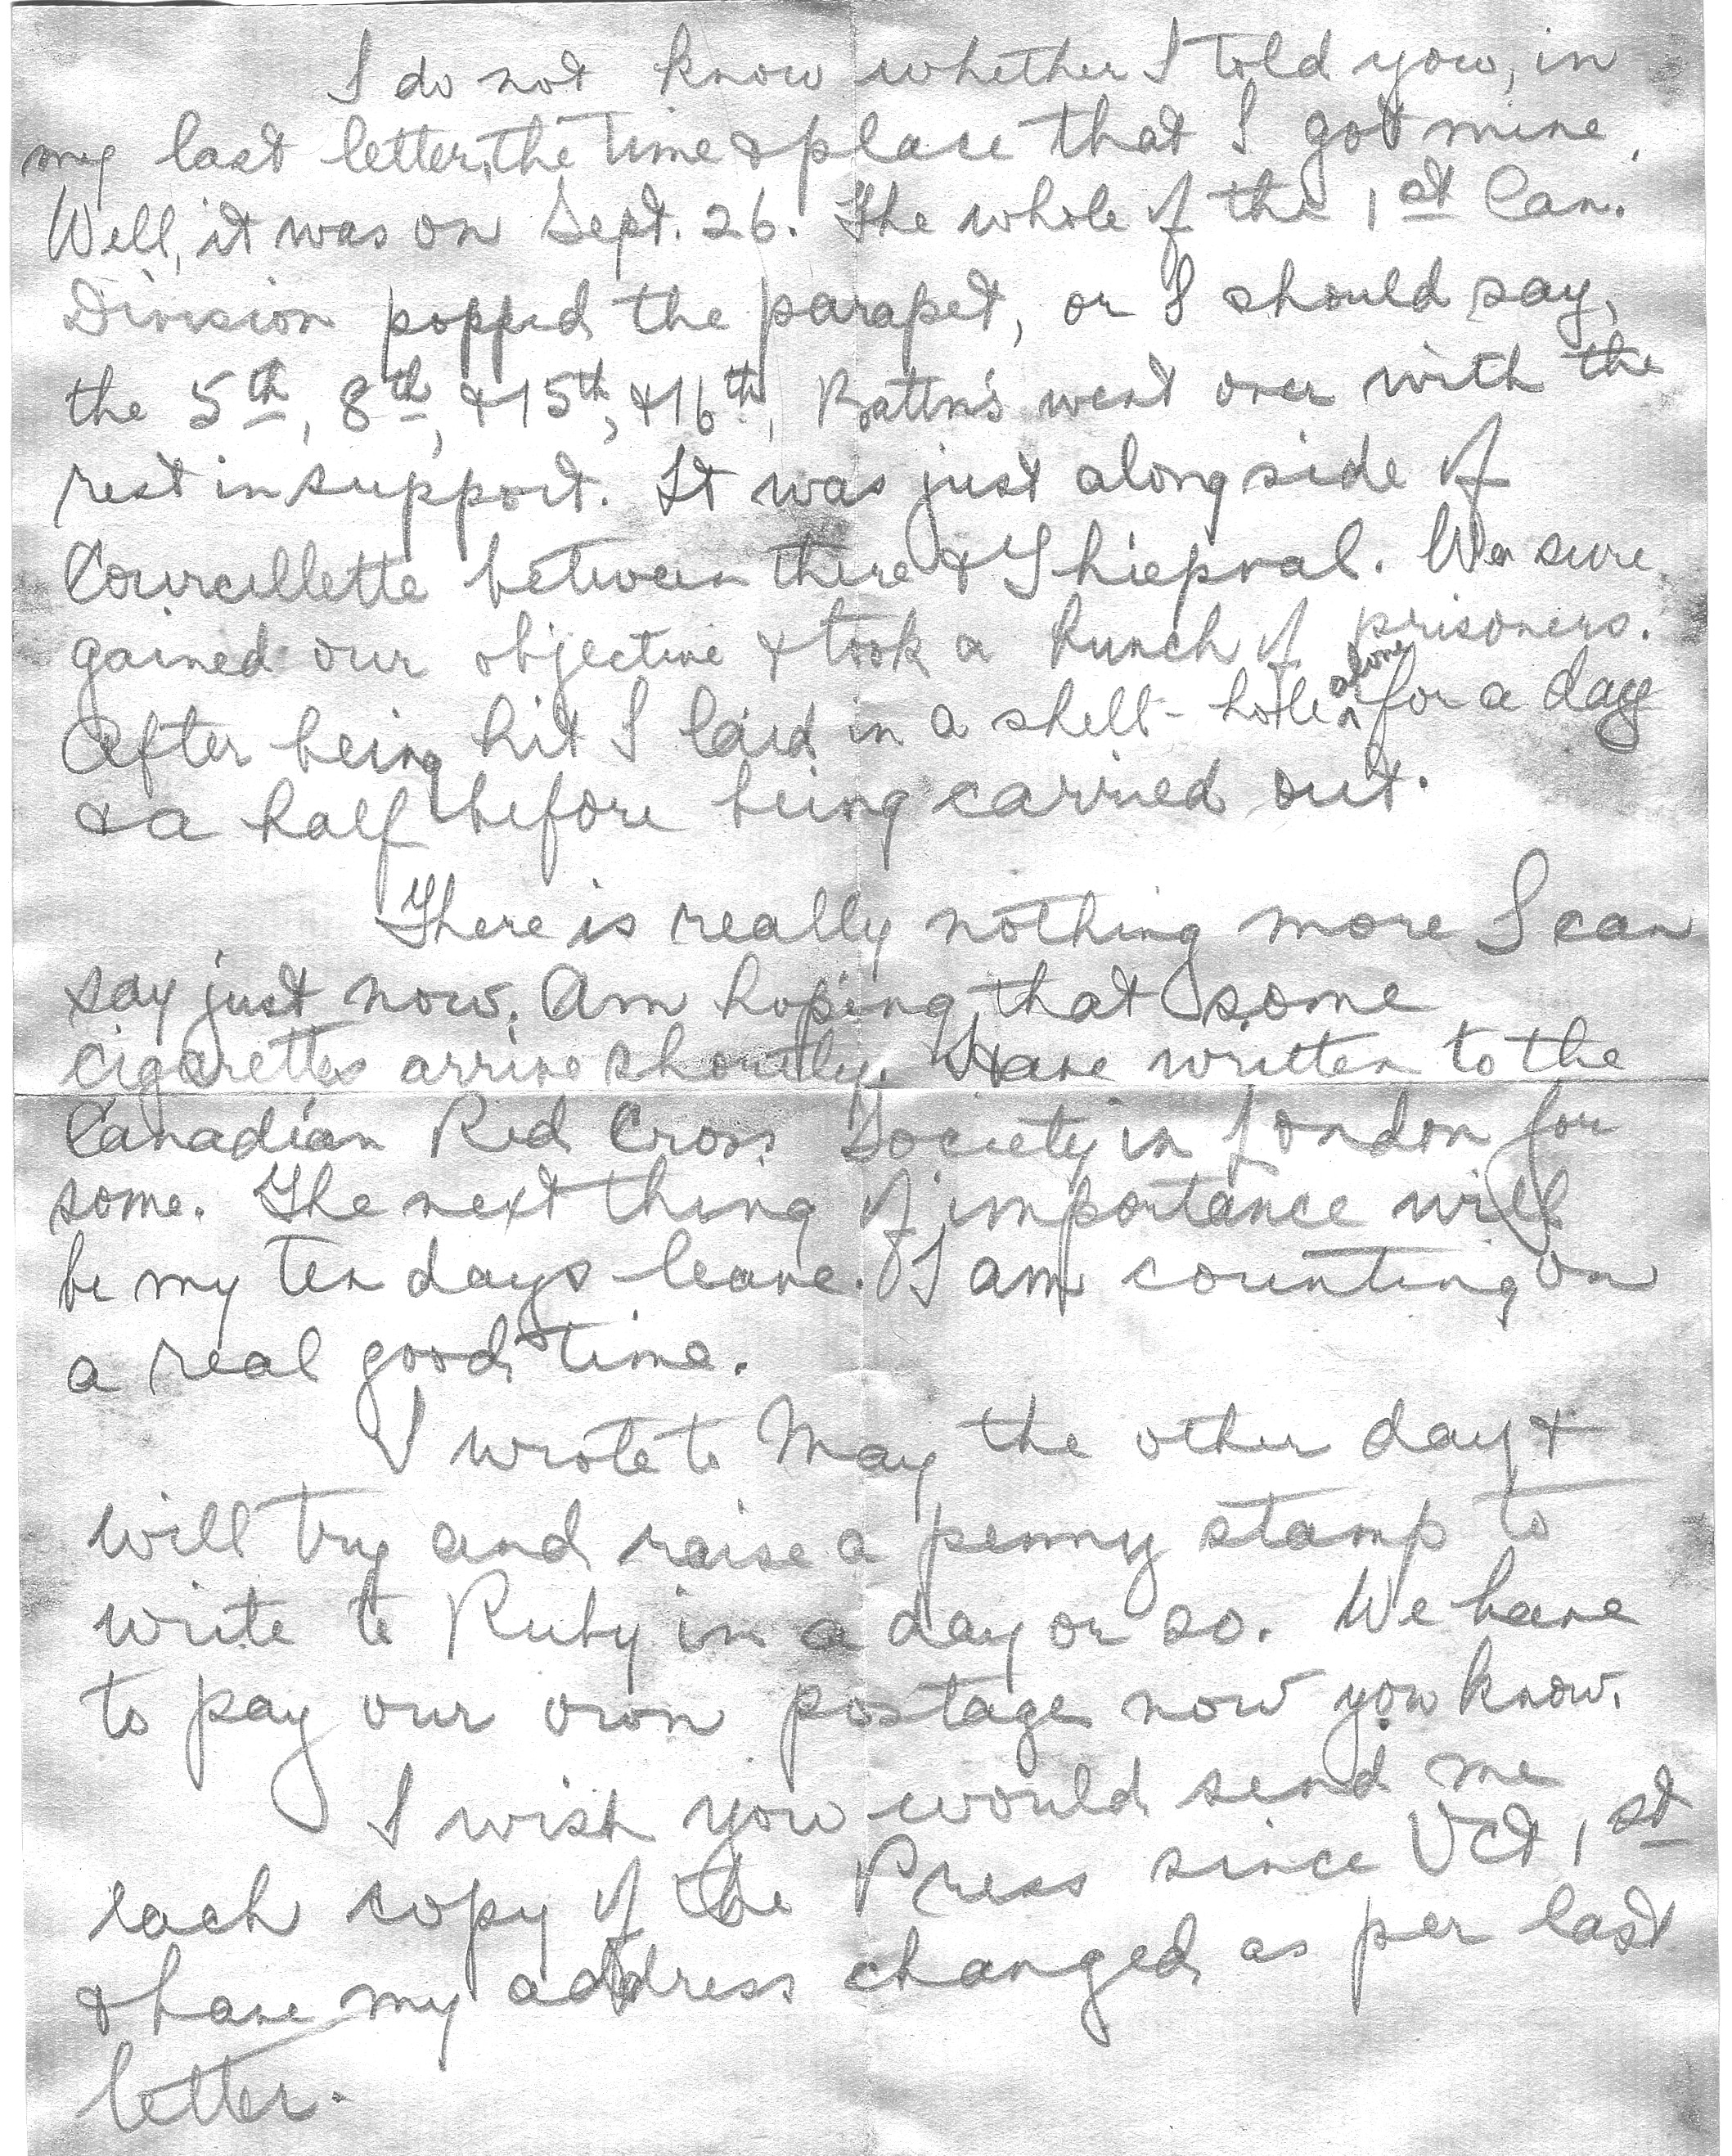 I do not know whether I told you, in
my last letter, the time & place that I got mine.
Well, it was on Sept. 26. The whole of the 1st Can.
Division popped the parapet, or I should say,
the 5th, 8th, & 15th, & 16th, Battn's went over with the
rest in support. It was just alongside of
Courcellette between there & Thiepval. We sure
gained our objective & took a bunch of prisoners.
After being hit I laid in a shell-hole alone for a day
& a half before being carried out.
There is really nothing more I can
say just now. Am hoping that some
cigarettes arrive shortly. Have written to the
Canadian Red Cross Society in London for
some. The next thing of importance will
be my ten days leave. I am counting on
a real good time.
I wrote to May the other day &
will try and raise a penny stamp to
write to Ruby in a day or so. We have
to pay our own postage now you know.
I wish you would send me
each copy of the Press since Oct 1st
& have my address changed as per last
letter.